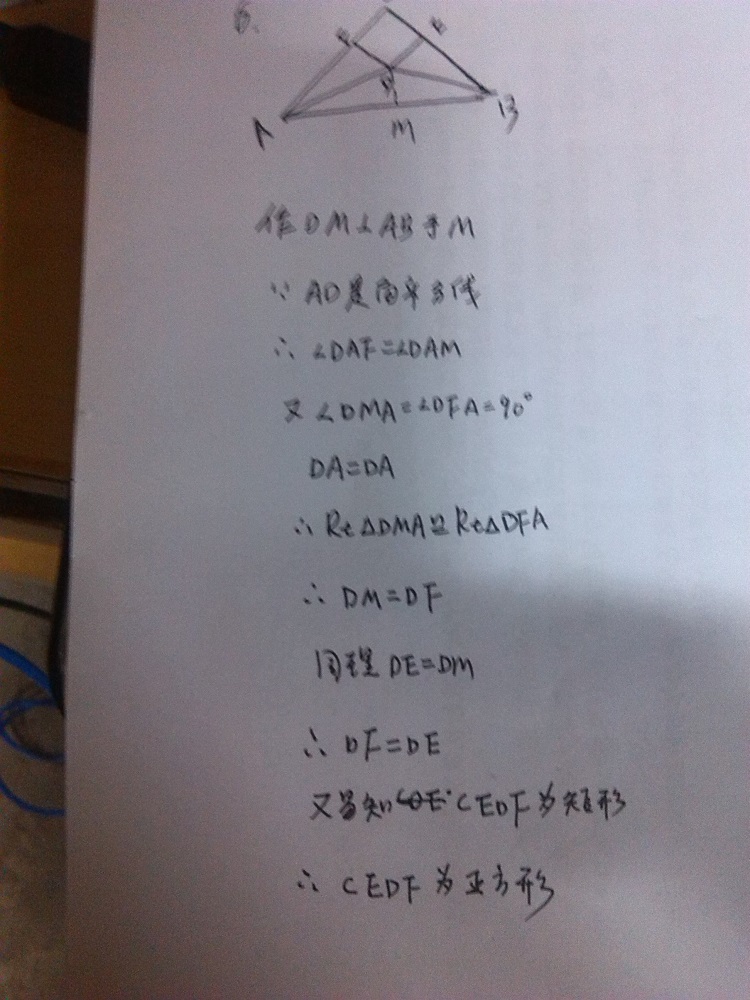 6.
A
M
B
作DM⊥AB于M
∵ AD是角平方线
∴ ∠DAF=∠DAM
又 ∠DMA=∠DFA=90°
DA=DA
∴ Rt△DMA≌Rt△DFA
∴ DM=DF
同理 DE=DM
∴ DF=DE
又易知 CEDF为矩形
∴ CEDF为正方形